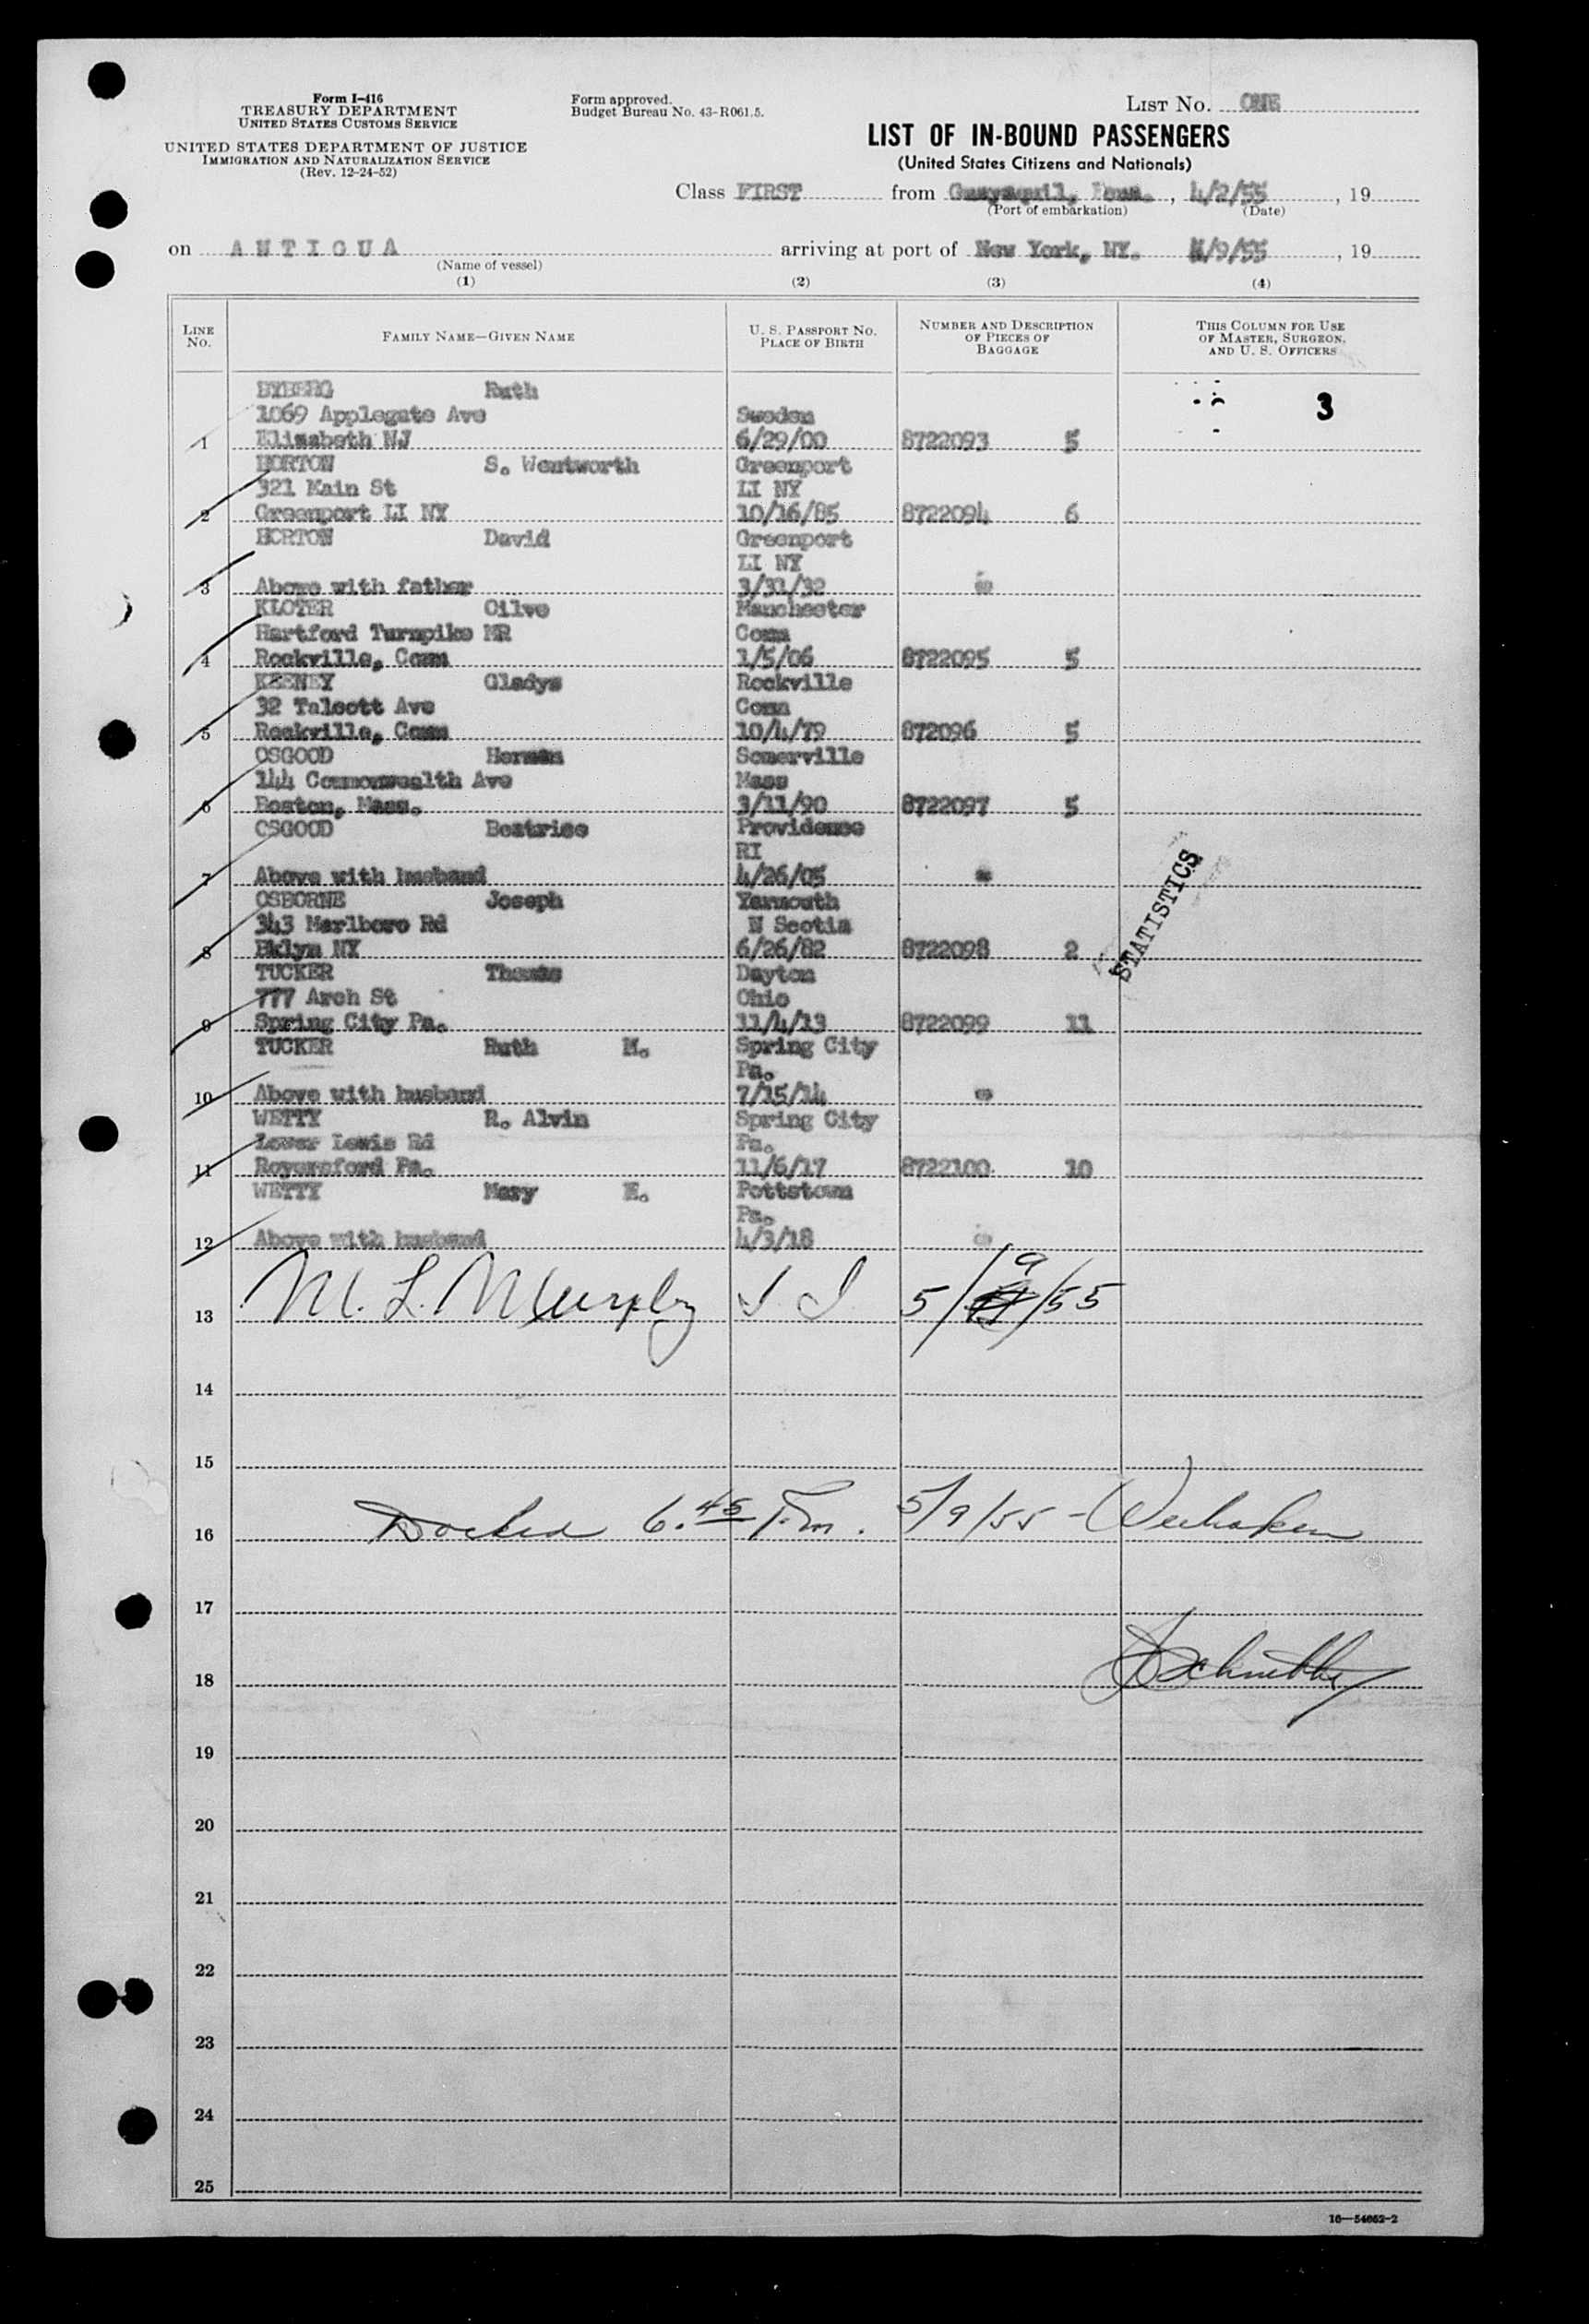 Form I-416
TREASURY DEPARTMENT
UNITED STATES CUSTOMS SERVICE
UNITED STATES DEPARTMENT OF JUSTICE
IMMIGRATION AND NATURALIZATION SERVICE
(Rev. 12-24-52)
Form approved.
Budget Bureau No. 43-R061.5.
LIST NO. ONE
LIST OF IN-BOUND PASSENGERS
(United States Citizens and Nationals)
Class FIRST from Guayaquil, , 4/2/55, 19
(Port of embarkation) (Date)
on ANTIGUA arriving at port of New York, NY. /9/55, 19
(Name of vessel)
(1) (2) (3) (4)
LINE NO. FAMILY NAME—GIVEN NAME U. S. PASSPORT NO. PLACE OF BIRTH NUMBER AND DESCRIPTION OF PIECES OF BAGGAGE THIS COLUMN FOR USE OF MASTER, SURGEON, AND U. S. OFFICERS
Ruth 3
1069 Applegate Ave Sweden
1 Elizabeth NJ 6/29/00 8722093 5
HORTON S. Wentworth Greenport
321 Main St LI NY
2 Greenport LI NY 10/16/85 8722094 6
HORTON David Greenport
LI NY
3 Above with father 3/31/32
KLOTER Oilve Manchester
Hartford Turnpike MR Conn
4 Rockville, Conn 1/5/06 8722095 5
KEENEY Gladys Rockville
32 Talcott Ave Conn
5 Rockville, Conn 10/4/79 872096 5
OSGOOD Herman Somerville
144 Commonwealth Ave Mass
6 Boston, Mass. 3/11/90 8722097 5
OSGOOD Beatrice Providence
RI
7 Above with husband 4/26/05
OSBORNE Joseph Yarmouth
343 Marlboro Rd N Scotia
8 Bklyn NY 6/26/82 8722098 2
STATISTICS
TUCKER Thomas Dayton
777 Arch St Ohio
9 Spring City Pa. 11/4/13 8722099 11
TUCKER Ruth M. Spring City
Pa.
10 Above with husband 7/15/14
WETTY R. Alvin Spring City
Lower Lewis Rd Pa.
11 Royersford Pa. 11/6/17 8722100 10
WETTY Mary E. Pottstown
Pa.
12 Above with husband 4/3/18
13 M. L. Murphy I I 5/9/55
14
15
16 Docked 6.45 P.m. 5/9/55 - Weehaken
17
18
19
20
21
22
23
24
25
16—54052-2